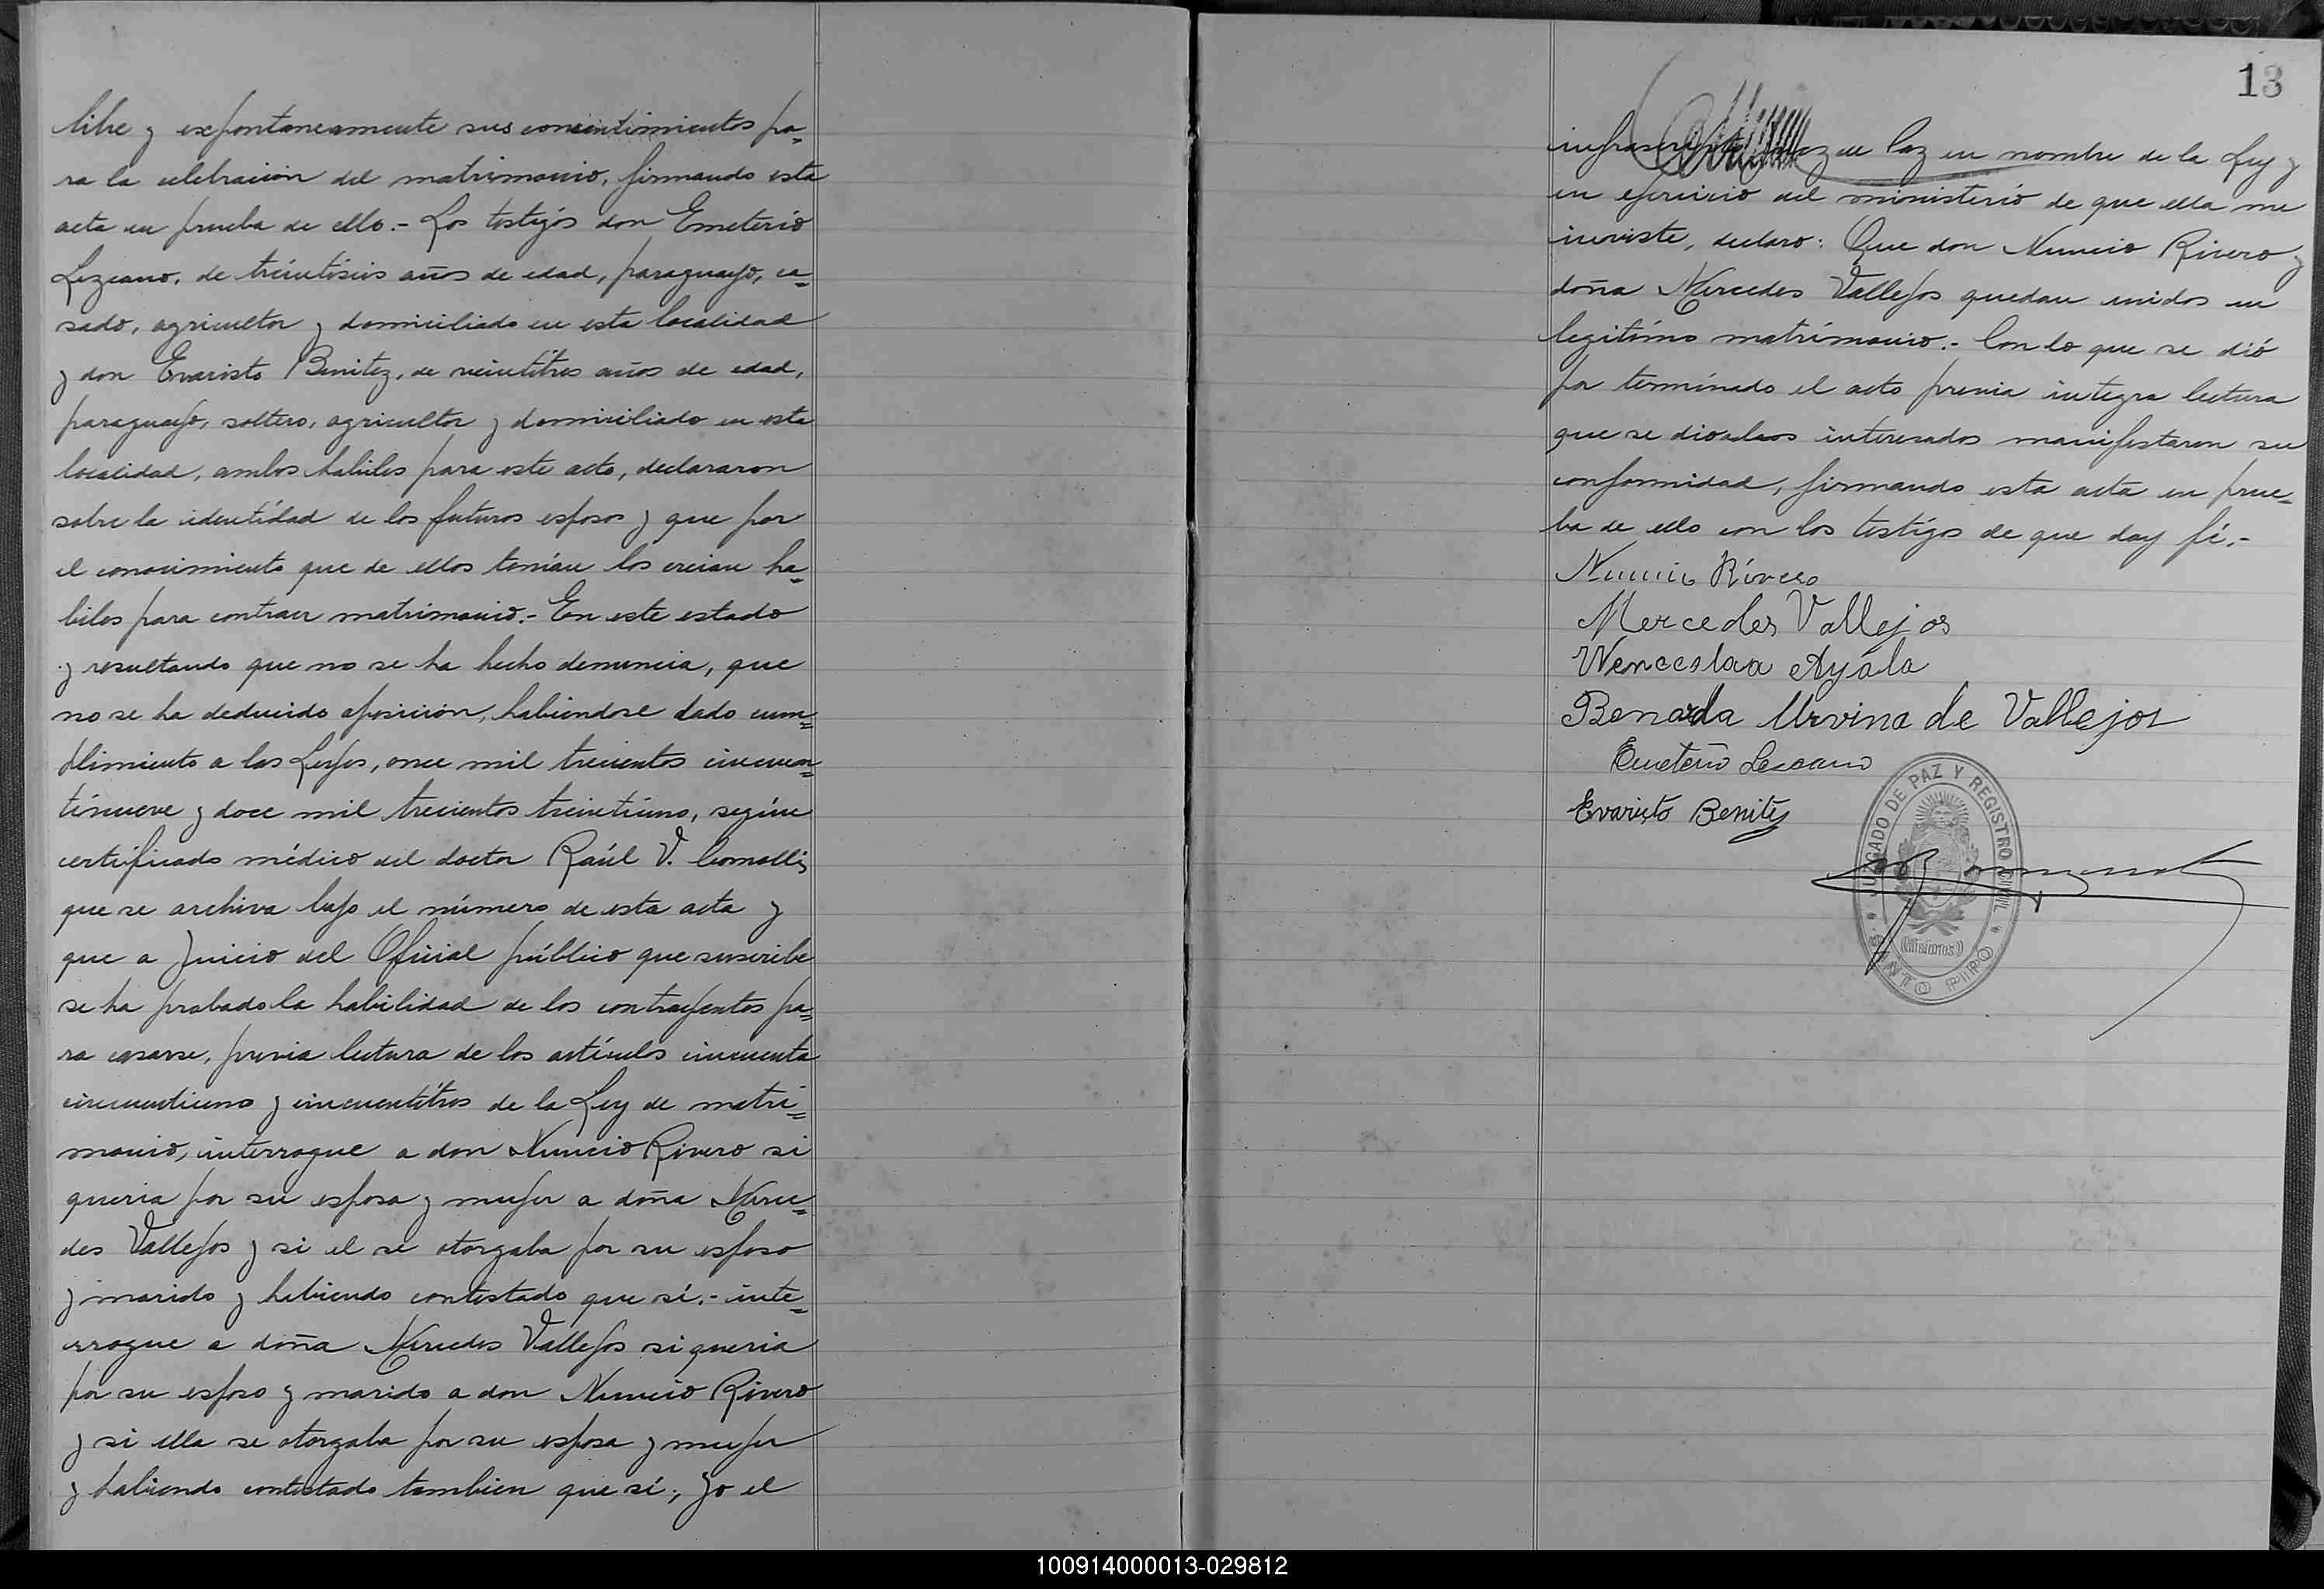 libre y expontaneamente sus consentimientos pa=
ra la celebración del matrimonio, firmando esta
acta en prueba de ello.- Los testigos don Emeterio
Lezcano, de treintiseis años de edad, paraguayo, ca=
sado, agricultor y domiciliado en esta localidad
y don Evaristo Benitez, de veintitres años de edad,
paraguayo, soltero, agricultor y domiciliado en esta
localidad, ambos habiles para este acto, declararon
sobre la identidad de los futuros esposos y que por
el conocimiento que de ellos tenían los creian ha=
biles para contraer matrimonio.- En este estado
y resultando que no se ha hecho denuncia, que
no se ha deducido oposición, habiendose dado cum=
plimiento a las Leyes, once mil trecientos cincuen=
tinueve y doce mil trecientos treintiuno, según
certificado médico del doctor Raúl V. Comolli,
que se archiva bajo el número de esta acta y
que a juicio del Oficial público que suscribe
se ha probado la habilidad de los contrayentes pa=
ra casarse, previa lectura de los artículos cincuenta
cincuentiuno y cincuentitres de la Ley de matri=
monio, interrogue a don Nuncio Rivero si
queria por su esposa y mujer a doña Merce=
des Vallejos y si el se otorgaba por su esposo
y marido y habiendo contestado que si.- inte=
rrogue a doña Mercedes Vallejos si queria
por su esposo y marido a don Nuncio Rivero
y si ella se otorgaba por su esposa y mujer
y habiendo contestado tambien que si; yo el
13
infrascripto Juez de Paz en nombre de la Ley y
en ejercicio del ministerio de que ella me
inviste, declaro: Que don Nuncio Rivero y
doña Mercedes Vallejos quedan unidos en
legitimo matrimonio.- Con lo que se dió
por terminado el acto previa integra lectura
que se dio a los interesados manifestaron su
conformidad, firmando esta acta en prue=
ba de ello con los testigos de que doy fé.-
Nuncio Rivero
Mercedes Vallejos
Wenceslaa Ayala
Benarda Urvina de Vallejos
Emeterio Lezcano
Evaristo Benitez
JUZGADO DE PAZ Y REGISTRO CIVIL
(Misiones)
SANTO PIPO
100914000013-029812